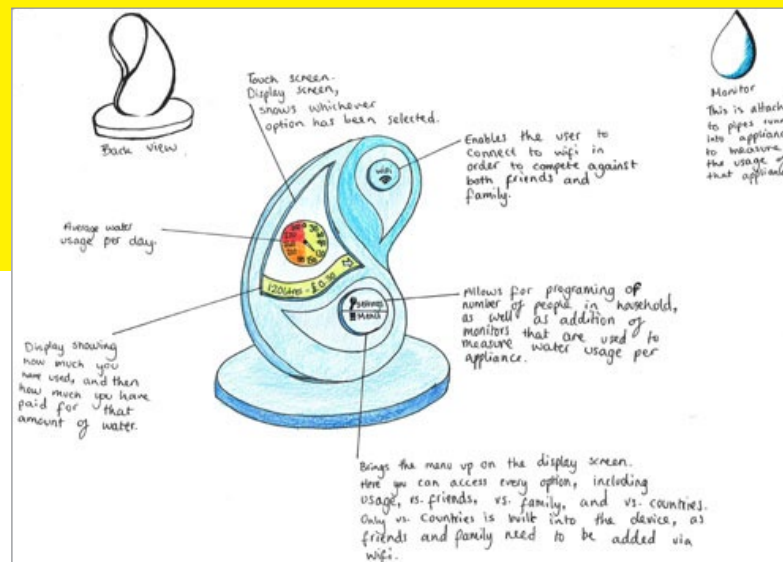 Back view
Touch screen.
Display screen,
shows whichever
option has been selected.
Monitor
This is attach
to pipes runn
into applianc
to measure
the usage o
that applianc
Enables the user to
connect to wifi in
order to compete against
both friends and
family.
wifi
Average water
usage per day.
120 litres = £0.30
settings
Menu
Allows for programing of
number of people in household,
as well as addition of
monitors that are used to
measure water usage per
appliance.
Display showing
how much you
have used, and then
how much you have
paid for that
amount of water.
Brings the menu up on the display screen.
Here you can access every option, including
usage, vs. friends, vs. family, and vs. countries.
Only vs. Countries is built into the device, as
friends and family need to be added via
wifi.